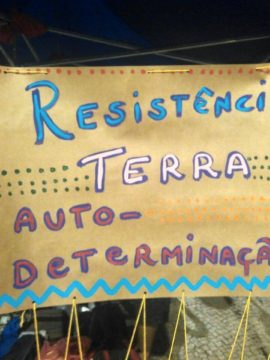 RESISTÊNCI
TERRA
AUTO-
DETERMINAÇÃ